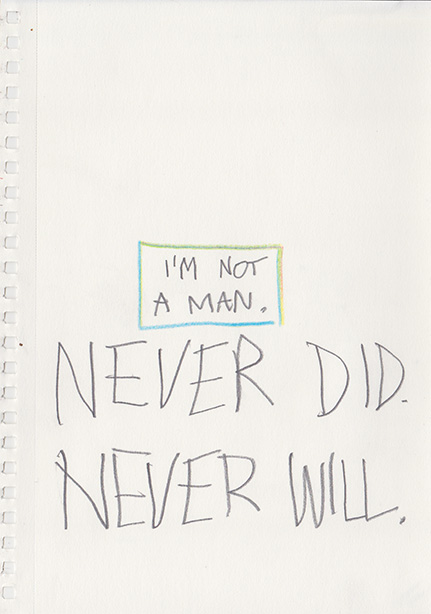 I'M NOT
A MAN.
NEVER DID.
NEVER WILL.